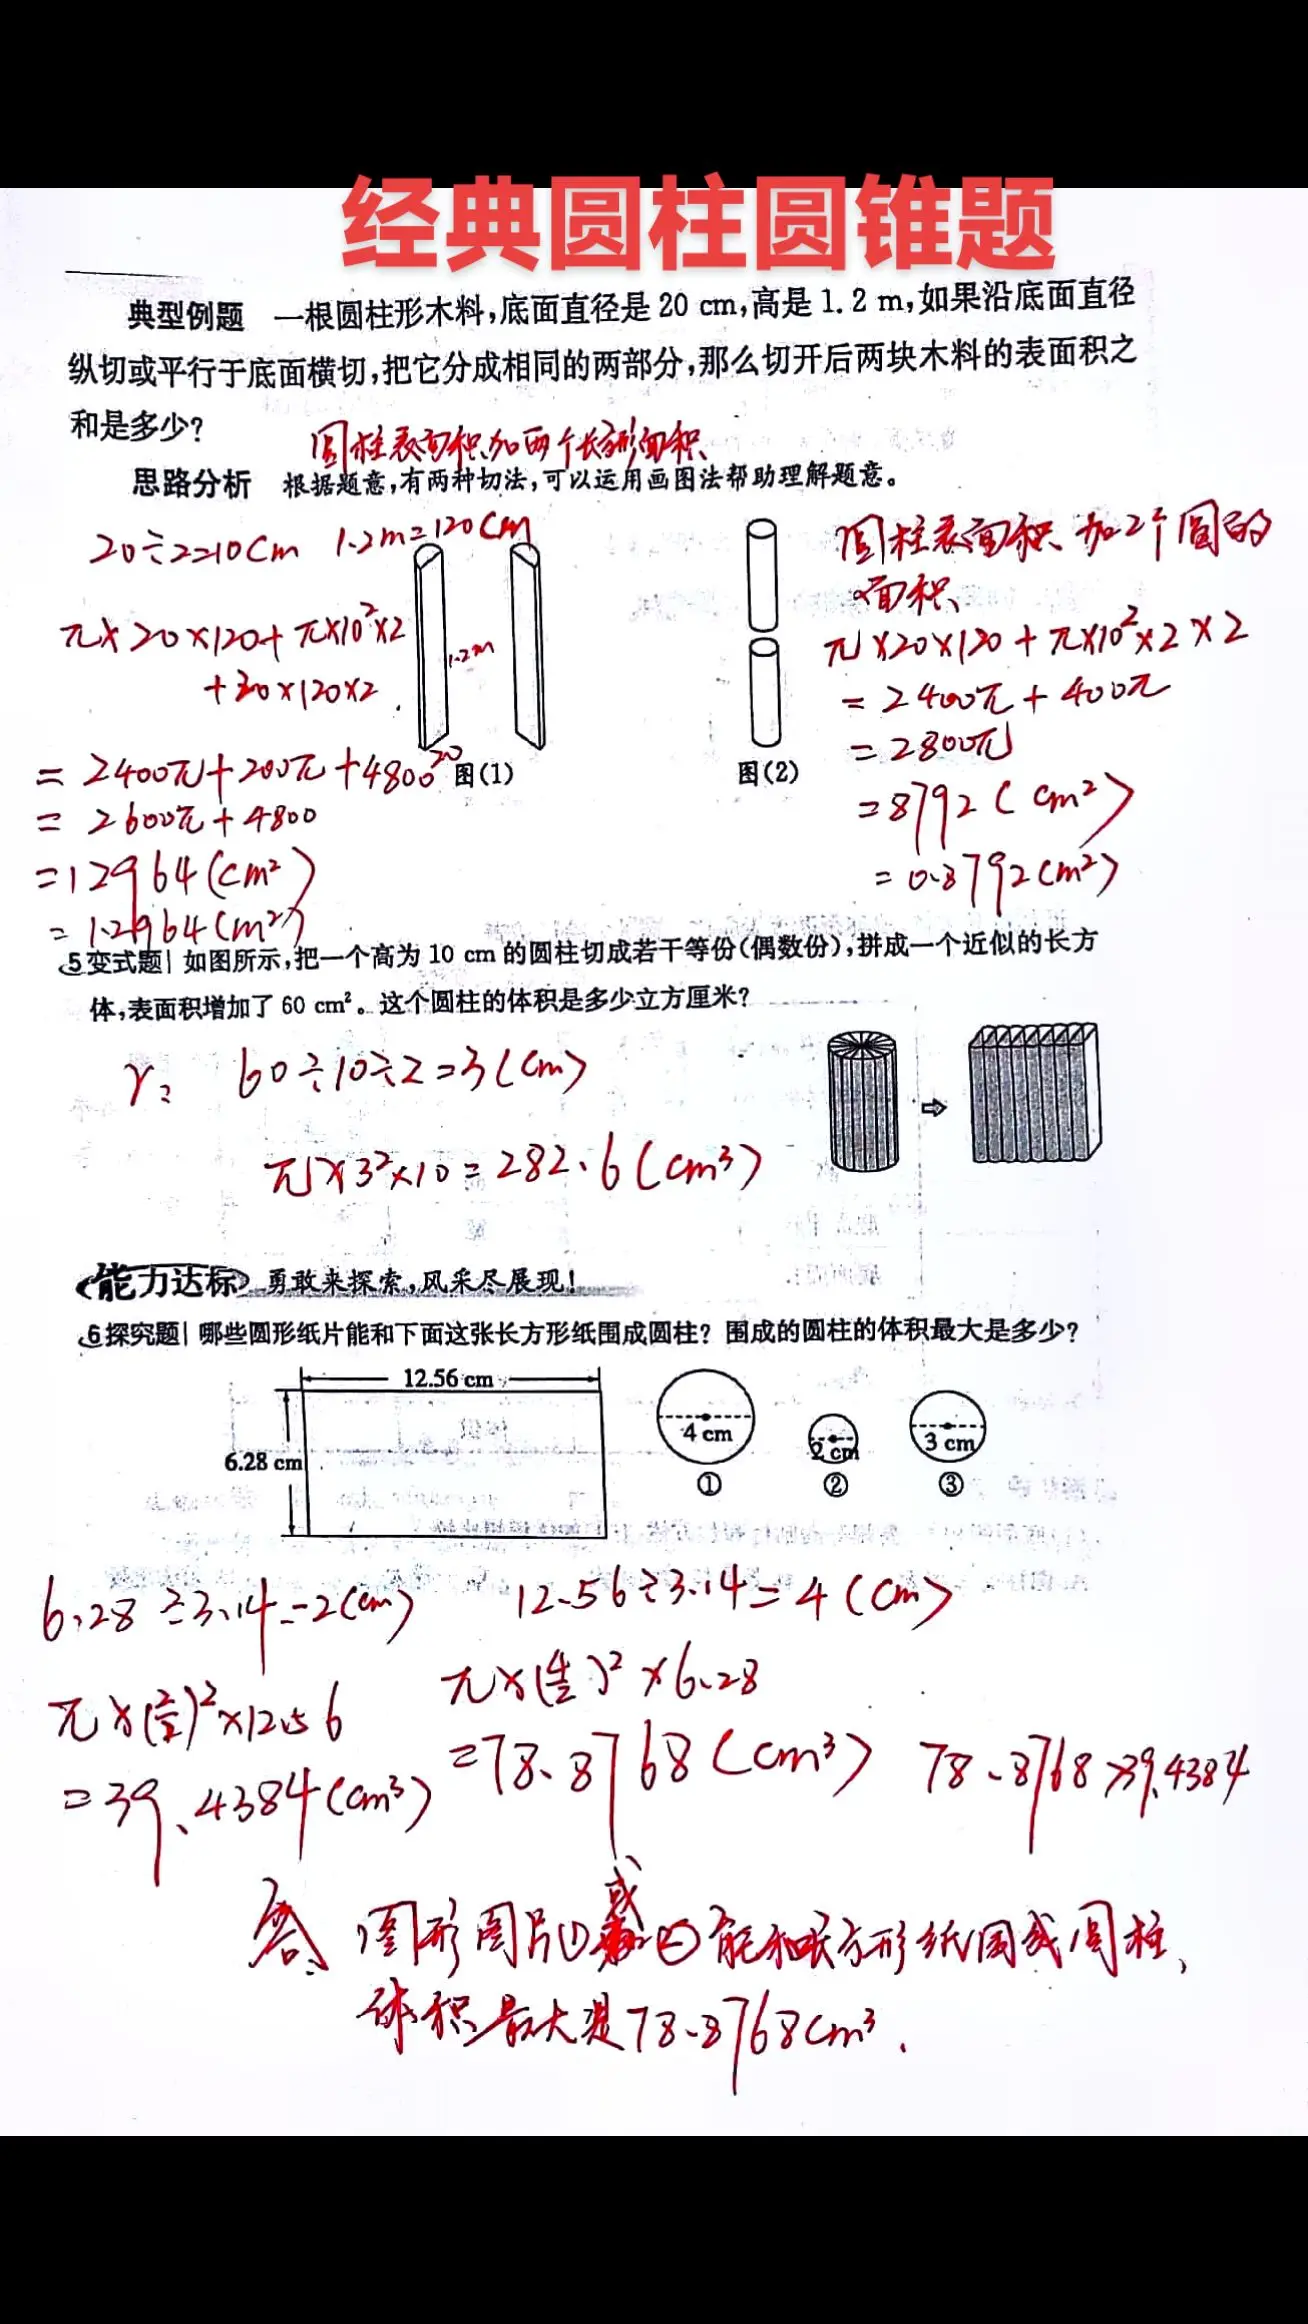 经典圆柱圆锥题
典型例题 一根圆柱形木料,底面直径是 20 cm,高是 1.2 m,如果沿底面直径
纵切或平行于底面横切,把它分成相同的两部分,那么切开后两块木料的表面积之
和是多少?
圆柱表面积加两个长方形面积
思路分析 根据题意,有两种切法,可以运用画图法帮助理解题意。
20÷2=10cm 1.2m=120cm
圆柱表面积加2个圆的
面积
π×20×120+π×10²×2
+20×120×2
1.2m
20
π×20×120+π×10²×2×2
=2400π+400π
=2800π
=8792(cm²)
=0.8792cm²)
=2400π+200π+4800
=2600π+4800
=12964(cm²)
=1.2964(m²)
图(1)
图(2)
5 变式题| 如图所示,把一个高为 10 cm 的圆柱切成若干等份(偶数份),拼成一个近似的长方
体,表面积增加了 60 cm²。这个圆柱的体积是多少立方厘米?
r: 60÷10÷2=3(cm)
π×3²×10=282.6(cm³)
能力达标 勇敢来探索,风采尽展现!
6 探究题| 哪些圆形纸片能和下面这张长方形纸围成圆柱? 围成的圆柱的体积最大是多少?
12.56 cm
6.28 cm
4 cm
2 cm
3 cm
① ② ③
6.28÷3.14=2(cm) 12.56÷3.14=4(cm)
π×(2/2)²×12.56
=39.4384(cm³)
π×(4/2)²×6.28
=78.8768(cm³) 78.8768>39.4384
答: 圆形图片①或②能和长方形纸围成圆柱,
体积最大是78.8768cm³.